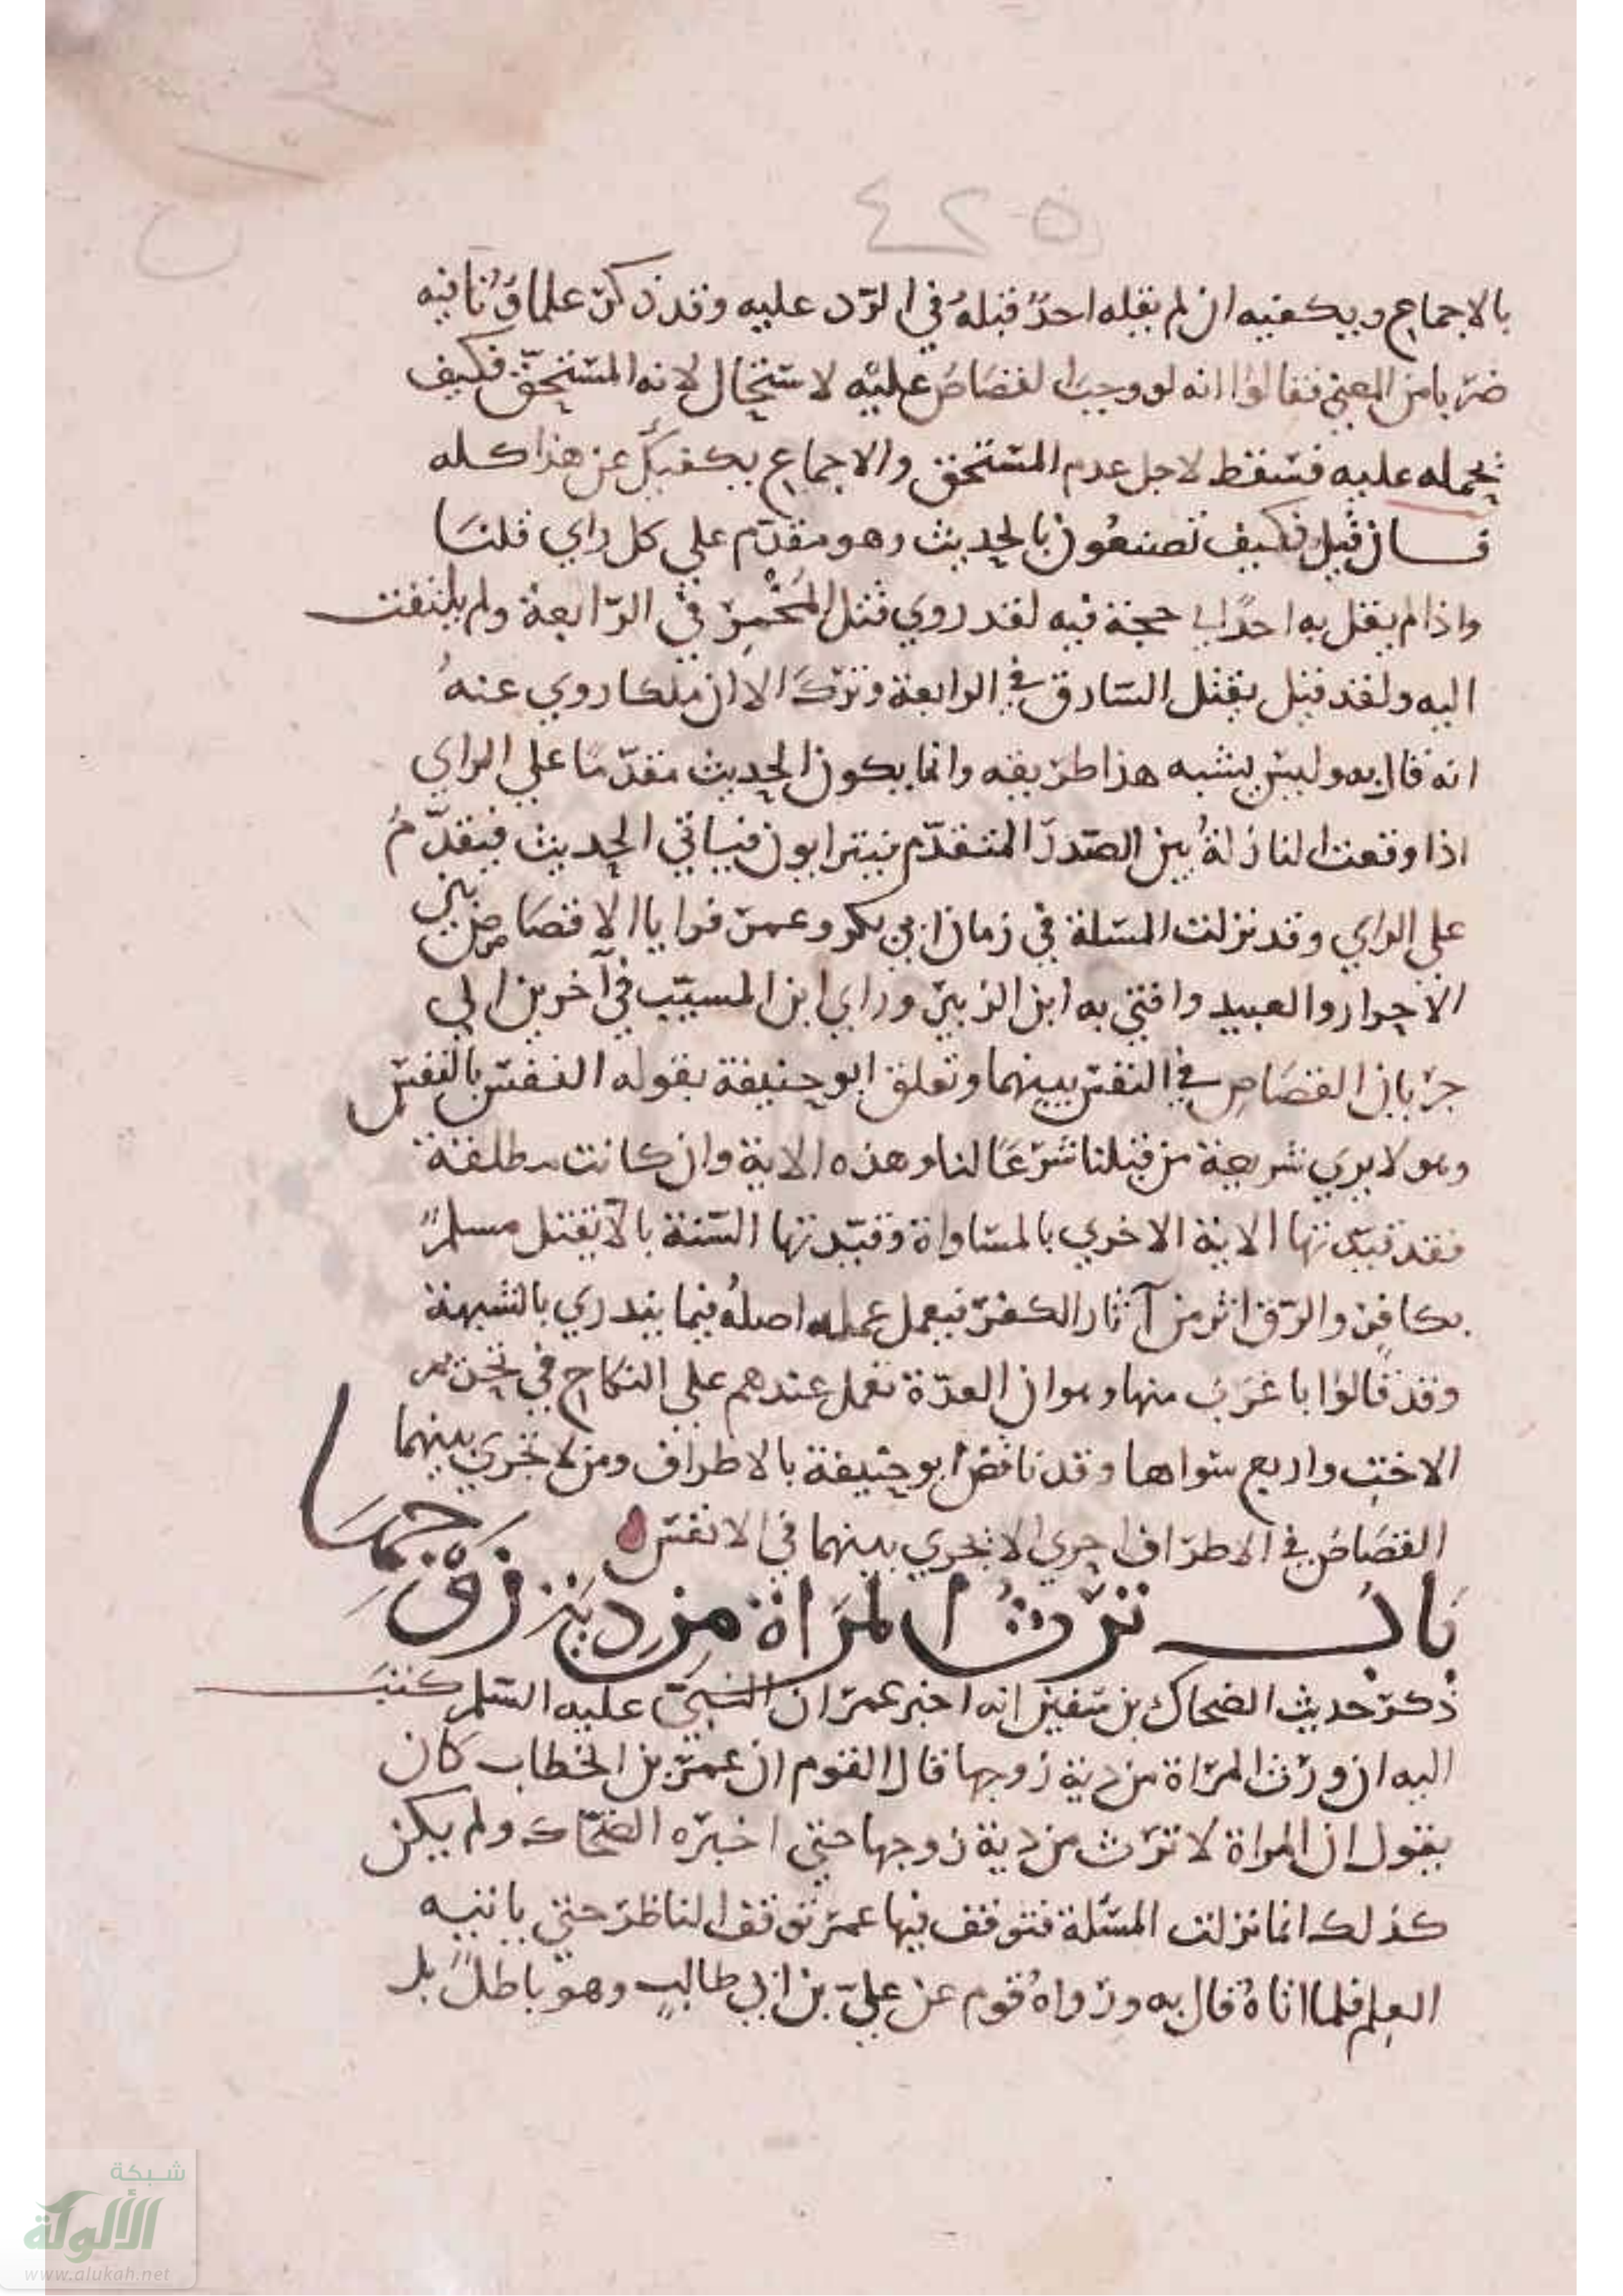 ٤٢٥
بالاجماع ويكفيه ان لم يقله احدٌ قبلهُ في الرّد عليه وقد ذكر علماؤُنا فيه
ضربا من المعني فقالوا انه لو وجبَ القصَاصُ عليْه لاستحَال لانه المسْتحِقّ فكيف
يحمله عليه فسقط لاجل عدم المستحق والاجماع يكفيكَ عن هذا كله
فان قيل فكيف تصنعُون بالحديث وهو مقدّم علي كل راي قلنا
واذا لم يقل به احدٌ اي حجة فيه لقد روي قتل المَخْمِرّ في الرّابعة ولم يلتفت
اليه ولقد قيل يقتل السّارق في الرابعة وترك الا ان ملكا روي عنهُ
انه قال به وليس يشبه هذا طريقه وانما يكون الحديث مقدّمًا علي الراي
اذا وقعت النازلةُ بين الصّدر المتقدّم فيترايون فياتي الحديث فيقدّمُ
علي الراي وقد نزلت المسلة في زمان ابي بكر وعمر فرايا الا قصاص بين
الاحرار والعبيد وافتي به ابن الزبير وراي ابن المسيّب في آخرين الي
جريان القصَاصِ في النفس بينهما وتعلق ابو حنيفة بقوله النفس بالنفس
وهو لا يري شريعة من قبلنا شرْعًا لنا وهذه الاية وان كانت مطلقة
فقد قيّدتها الاية الاخري بالمساواة وقيّدتها السّنة بالاّ يقتل مسلمٌ
بكافرٍ والرّق اثر من آثار الكفر فيعمل عمله اصلهُ فيما يندري بالشبهة
وقد قالوا باغرَبَ منها وهو ان العدّة تعمل عندهم علي النكاح في تحريم
الاختِ واربع سواها وقد ناقض ابو حنيفة بالاطراف ومن لا تجري بينهما
القصَاصُ في الاطرَاف احري الا تجري بينهما في الانفس
بَابُ ترِثُ المَرَاة مِن دِيَةِ زَوْجِهَا
ذكر حديث الضحاك بن سفين انه اخبر عمر ان النبيّ عليه السّلم كتبَ
اليه ان ورّث المرَاة من دية زوجها قال القوم ان عمر بن الخطاب كان
يقول ان المراة لا ترث من دية زوجها حتي اخبره الضحّاك ولم يكن
كذلك انما نزلت المسئلة فتوقف فيها عمر توقف الناظر حتي ياتيه
العِلم فلما اتاهُ قال به ورواهُ قوم عن عليّ بن ابي طالبٍ وهو باطلٌ بل
شبكة
الألوكة
www.alukah.net